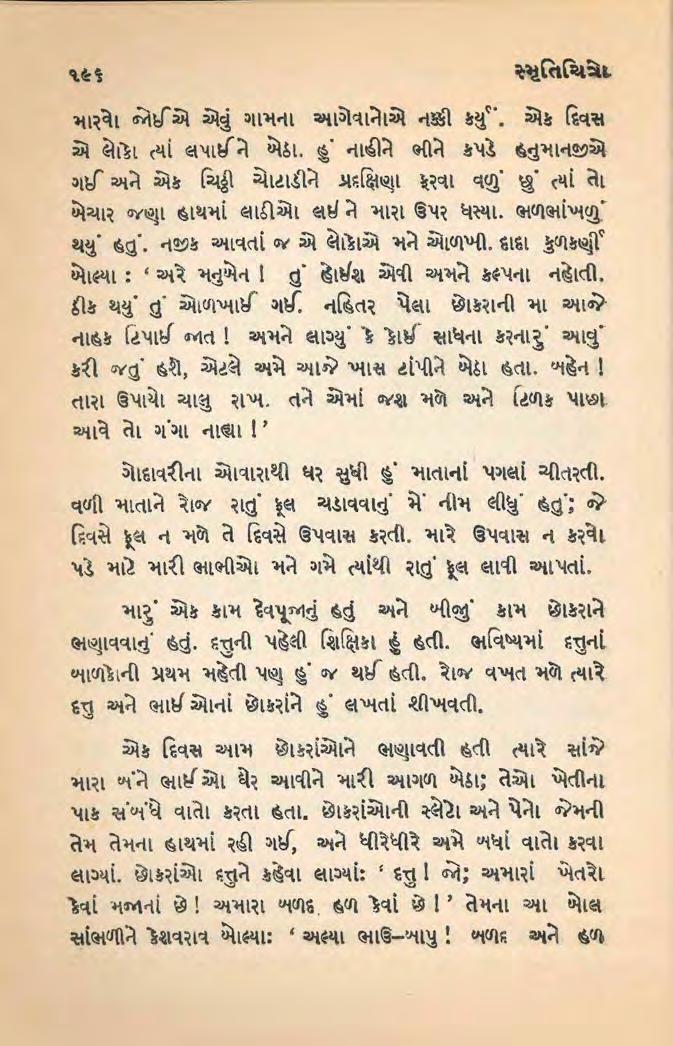 ૧૯૬
સ્મૃતિચિત્રો
મારવો જોઈએ એવું ગામના આગેવાનોએ નક્કી કર્યું. એક દિવસ
એ લોકો ત્યાં લપાઈને બેઠા. હું નાહીને ભીને કપડે હનુમાનજીએ
ગઈ અને એક ચિઠ્ઠી ચોટાડીને પ્રદક્ષિણા ફરવા વળું છું ત્યાં તો
બેચાર જણા હાથમાં લાઠીઓ લઈને મારા ઉપર ધસ્યા. ભળભાંખળું
થયું હતું. નજીક આવતાં જ એ લોકોએ મને ઓળખી. દાદા કુળકર્ણી
બોલ્યા : ‘ અરે મનુબેન ! તું હોઈશ એવી અમને કલ્પના નહોતી.
ઠીક થયું તું ઓળખાઈ ગઈ. નહિતર પેલા છોકરાની મા આજે
નાહક ટિપાઈ જાત ! અમને લાગ્યું કે કોઈ સાધના કરનારું આવું
કરી જતું હશે, એટલે અમે આજે ખાસ ટાંપીને બેઠા હતા. બહેન !
તારા ઉપાયો ચાલુ રાખ. તને એમાં જશ મળે અને ટિળક પાછા
આવે તો ગંગા નાહ્યા !’
ગોદાવરીના ઓવારાથી ઘર સુધી હું માતાનાં પગલાં ચીતરતી.
વળી માતાને રોજ રાતું ફૂલ ચડાવવાનું મેં નીમ લીધું હતું; જે
દિવસે ફૂલ ન મળે તે દિવસે ઉપવાસ કરતી. મારે ઉપવાસ ન કરવો
પડે માટે મારી ભાભીઓ મને ગમે ત્યાંથી રાતું ફૂલ લાવી આપતાં.
મારું એક કામ દેવપૂજાનું હતું અને બીજું કામ છોકરાને
ભણાવવાનું હતું. દત્તુની પહેલી શિક્ષિકા હું હતી. ભવિષ્યમાં દત્તુનાં
બાળકોની પ્રથમ મહેતી પણ હું જ થઈ હતી. રોજ વખત મળે ત્યારે
દત્તુ અને ભાઈઓનાં છોકરાંને હું લખતાં શીખવતી.
એક દિવસ આમ છોકરાંઓને ભણાવતી હતી ત્યારે સાંજે
મારા બંને ભાઈઓ ઘેર આવીને મારી આગળ બેઠા; તેઓ ખેતીના
પાક સંબંધે વાતો કરતા હતા. છોકરાંઓની સ્લેટો અને પેનો જેમની
તેમ તેમના હાથમાં રહી ગઈ, અને ધીરેધીરે અમે બધાં વાતો કરવા
લાગ્યાં. છોકરાંઓ દત્તુને કહેવા લાગ્યાં: ‘ દત્તુ ! જો; અમારાં ખેતરો
કેવાં મજાનાં છે ! અમારા બળદ હળ કેવાં છે !’ તેમના આ બોલ
સાંભળીને કેશવરાવ બોલ્યા: ‘ અલ્યા ભાઉ–બાપુ ! બળદ અને હળ